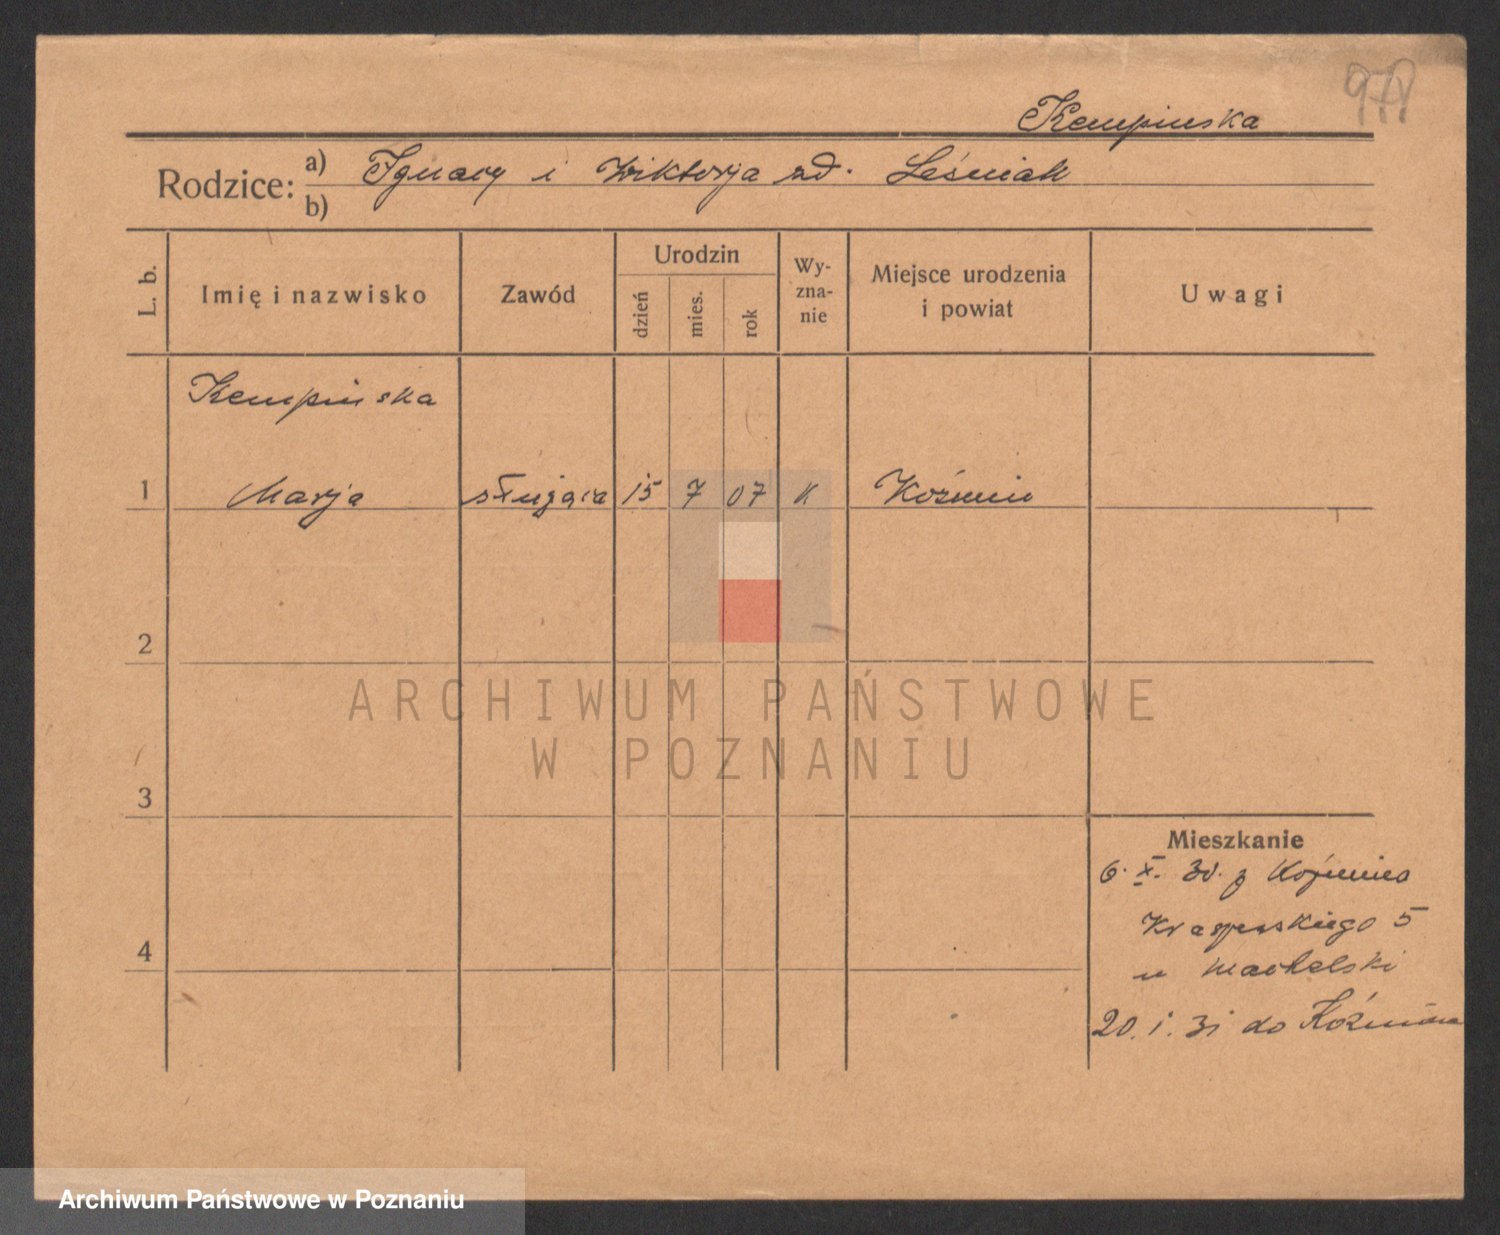 Kempinska
Rodzice: a) Ignacy i Wiktorja zd. Leśniak
b)
L. b.
Imię i nazwisko
Zawód
Urodzin
dzień
mies.
rok
Wy-
zna-
nie
Miejsce urodzenia
i powiat
Uwagi
Kempinska
1 Marja służąca 15 7 07 K Koźmin
2
3
4
Mieszkanie
6. X. 30. z Koźmina
5
u
20. I. 31 do Koźmina
ARCHIWUM PAŃSTWOWE
W POZNANIU
Archiwum Państwowe w Poznaniu